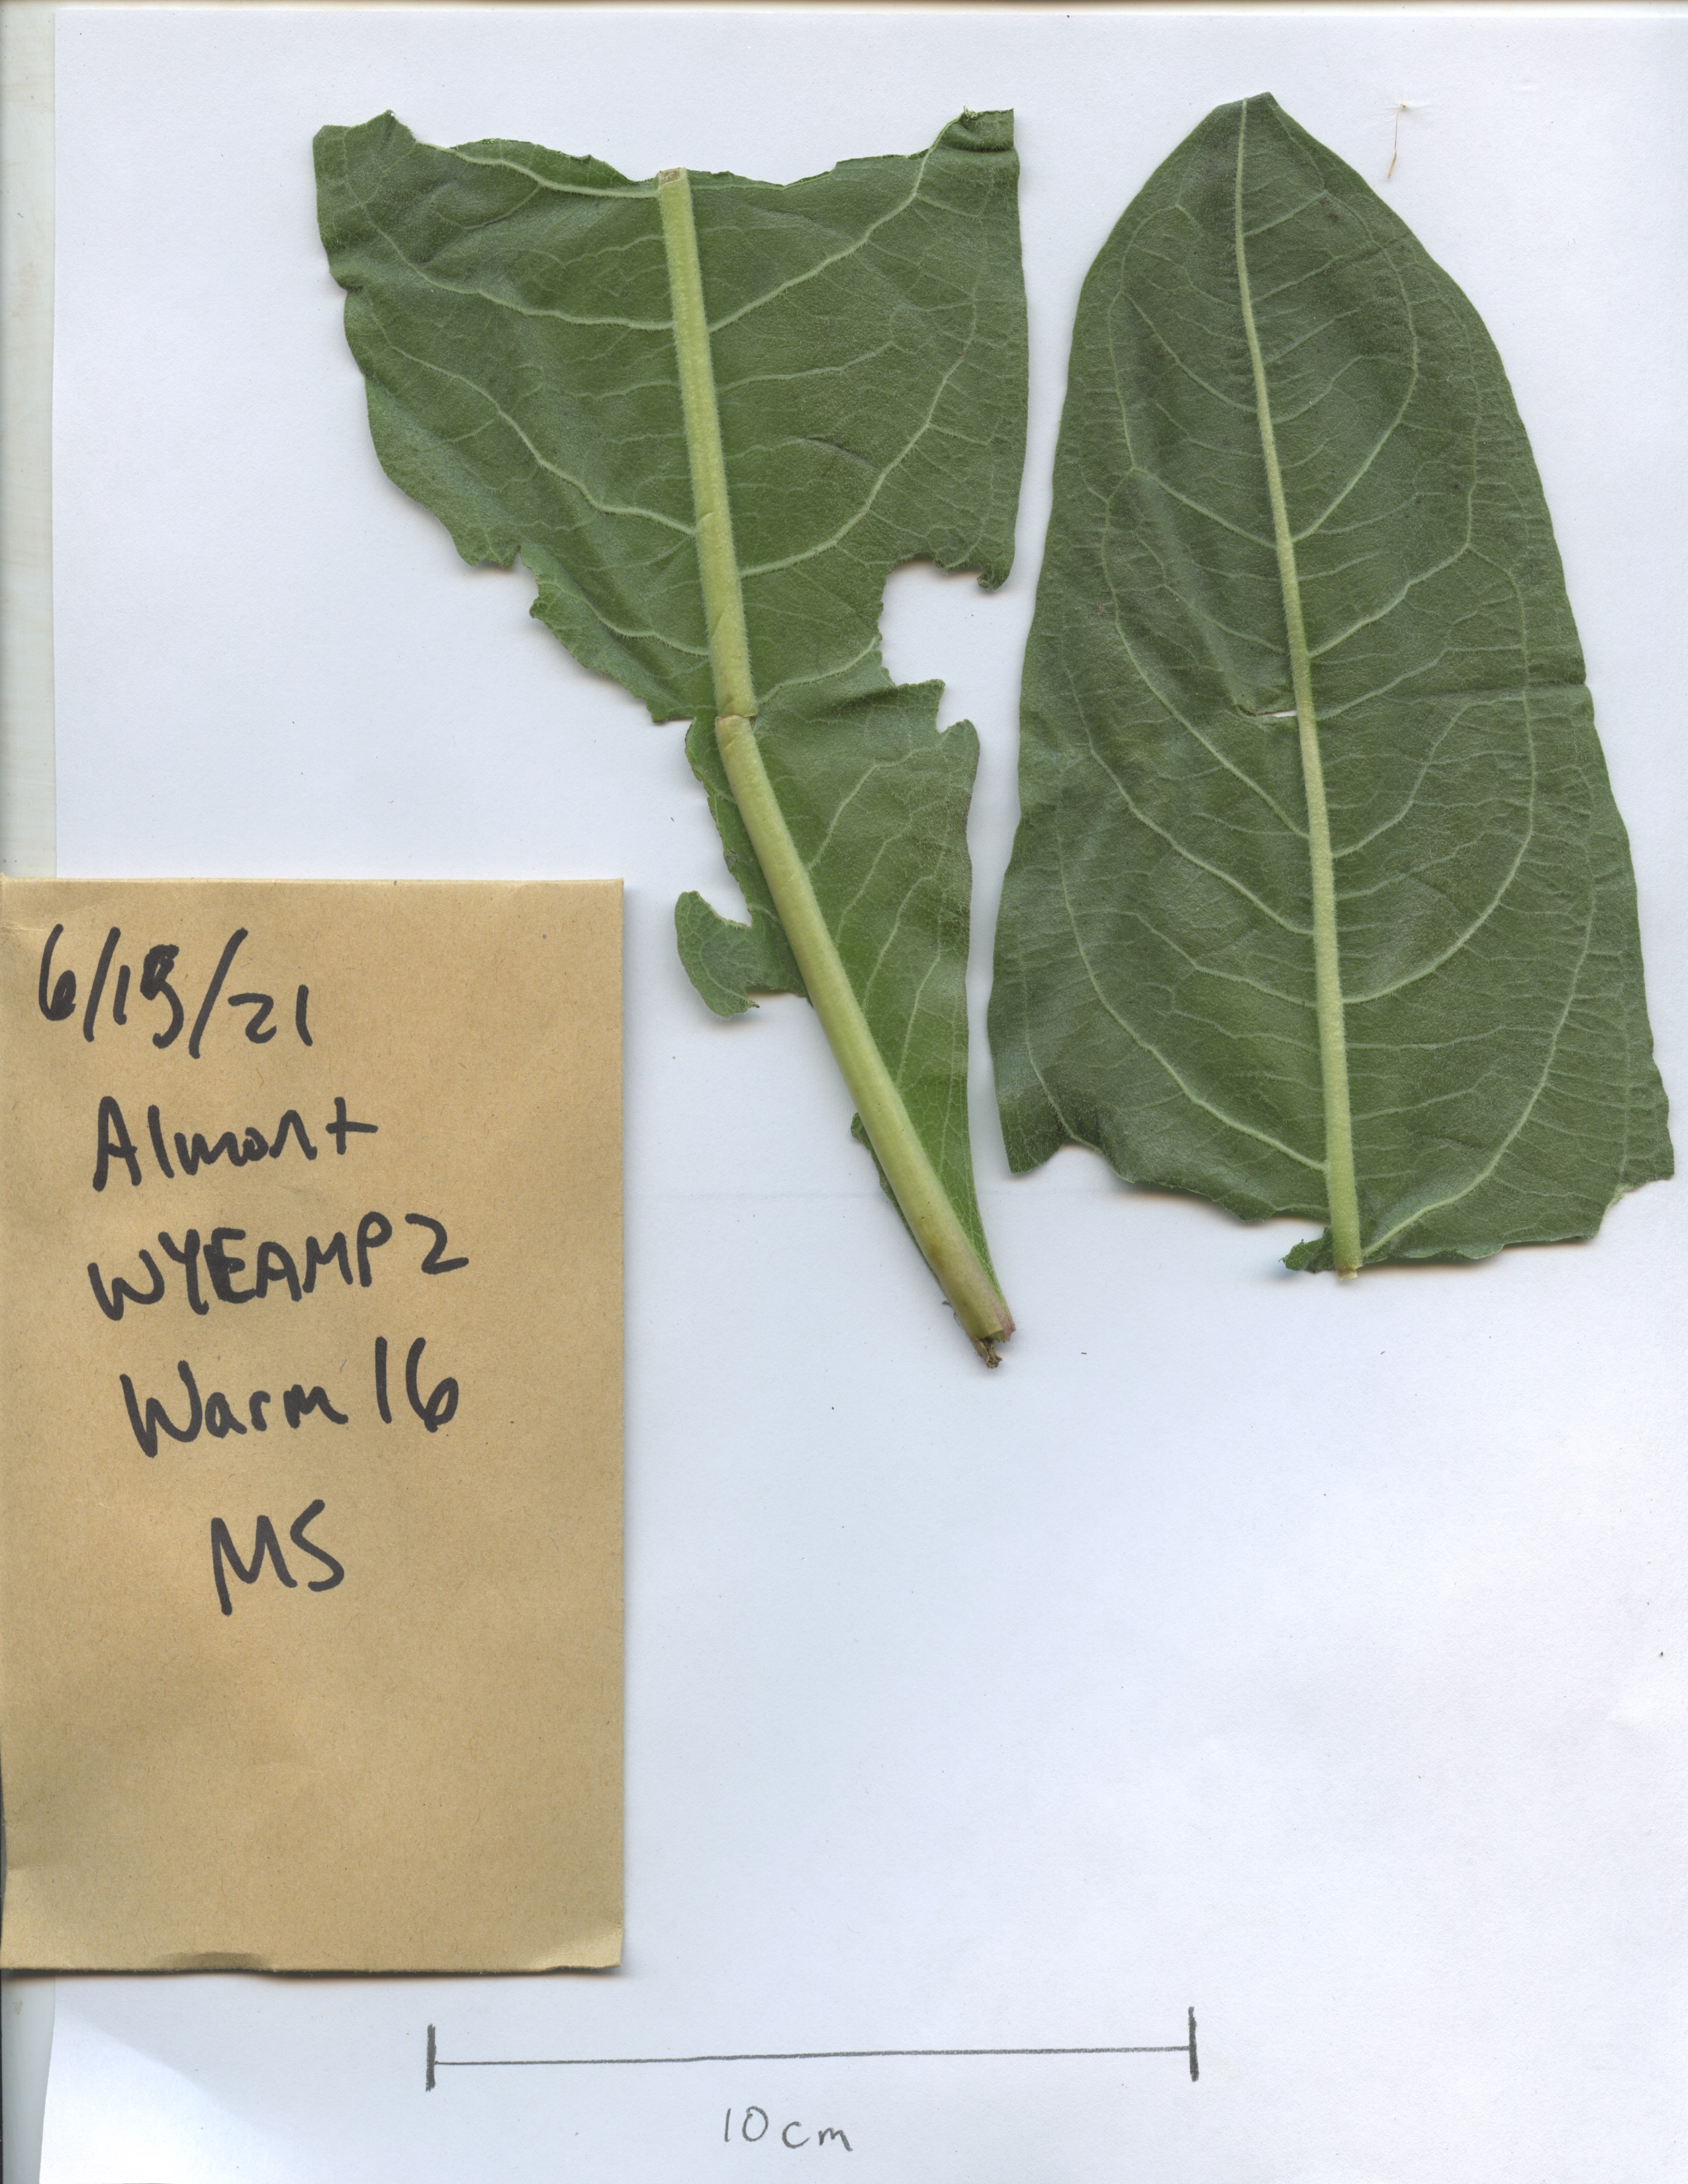 6/19/21
Almont
WYEAMP2
Warm 16
MS
10cm